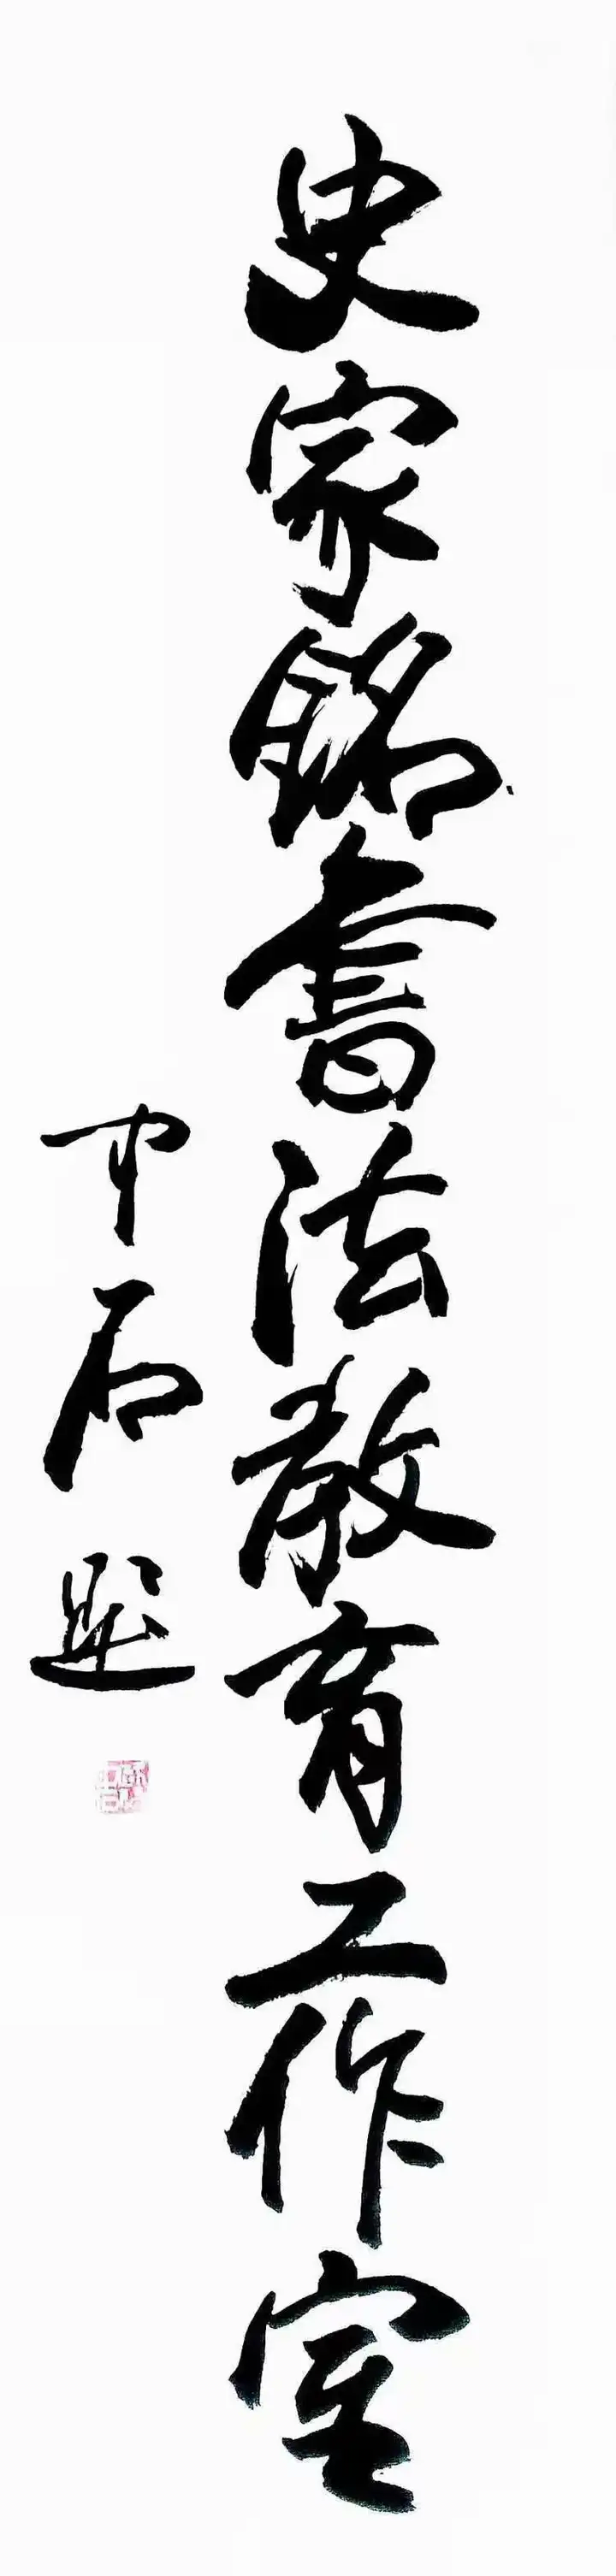 史家銘書法教育工作室
中石題